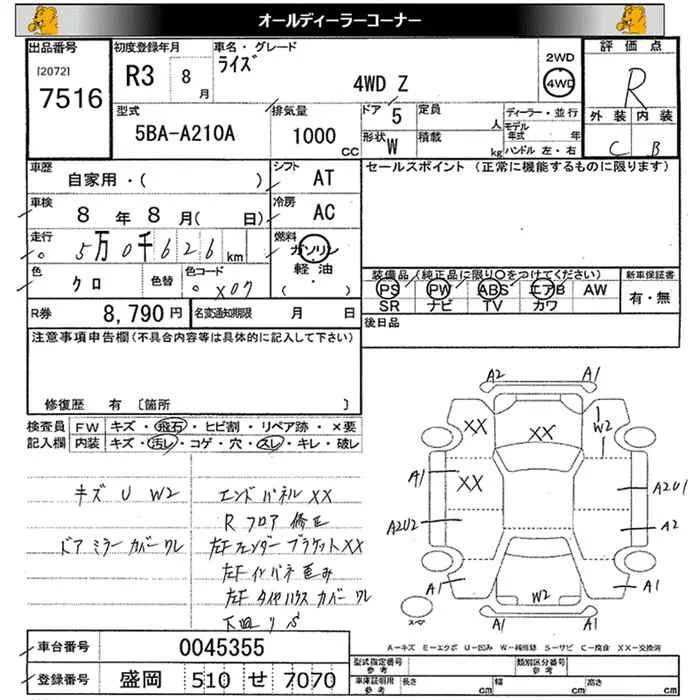 オールディーラーコーナー
出品番号
[2072]
7516
初度登録年月
R3 8月
車名・グレード
ライズ
4WD Z
2WD
4WD
評価点
R
外装 内装
C B
型式
5BA-A210A
排気量
1000 CC
ドア 5
定員 人
形状 W
積載 kg
ディーラー・並行
モデル年式 年
ハンドル 左・右
車歴
自家用・( )
シフト
AT
車検
8年8月( 日)
冷房
AC
走行
5万0千626km
燃料
ガソリン
軽油
( ・ )
色
クロ
色替
色コード
X07
R券
8,790円
名変通知期限 月 日
セールスポイント (正常に機能するものに限ります)
装備品(純正品に限り○をつけてください)
PS PW ABS エアB AW
SR ナビ TV カワ
新車保証書
有・無
後日品
注意事項申告欄(不具合内容等は具体的に記入して下さい)
修復歴 有 〔箇所 〕
検査員記入欄
FW キズ・飛石・ヒビ割・リペア跡・×要
内装 キズ・汚レ・コゲ・穴・スレ・キレ・破レ
キズ U W2
ドアミラーカバーワレ
エンドパネルXX
Rフロア修正
左Fフェンダーブラケット XX
左Fインパネ歪み
左Fタイヤハウスカバーワレ
A2 A1
XX XX W2
A1 XX A2U1
A2U2 A2
A1 W2 A1
A2 A1
スペア
A-キズ E-エクボ U-凹み W-補修跡 S-サビ C-腐食 XX-交換済
車台番号
0045355
登録番号
盛岡 510 せ 7070
型式指定番号 参考
類別区分番号 参考
車庫証明用 参考
長さ cm 幅 cm 高さ cm